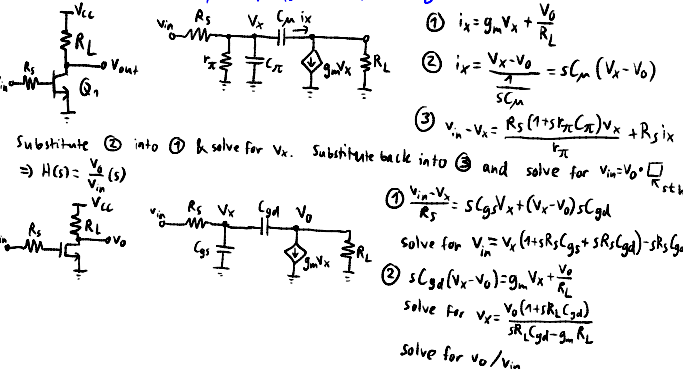 Vcc
RL
Vout
Rs
in
Q1
vin
Rs
Vx
Cμ
ix
rπ
Cπ
gmVx
RL
① ix = gmVx + V0/RL
② ix = (Vx-V0)/(1/sCμ) = sCμ (Vx-V0)
③ vin-vx = Rs(1+srπCπ)vx/rπ + Rs ix
Substitute ② into ① & solve for Vx. Substitute back into ③ and solve for vin=V0·□
⇒ H(s) = V0/Vin (s)
Vcc
RL
V0
Rs
in
vin
Rs
Vx
Cgd
V0
Cgs
gmVx
RL
① (vin-Vx)/Rs = sCgsVx+(Vx-V0)sCgd
solve for Vin = Vx(1+sRsCgs+sRsCgd)-sRsCg
② sCgd(Vx-V0)=gmVx+V0/RL
solve for Vx = V0(1+sRLCgd)/(sRLCgd-gmRL)
solve for V0/Vin